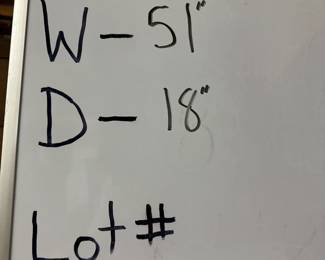 W - 51"
D - 18"
Lot #